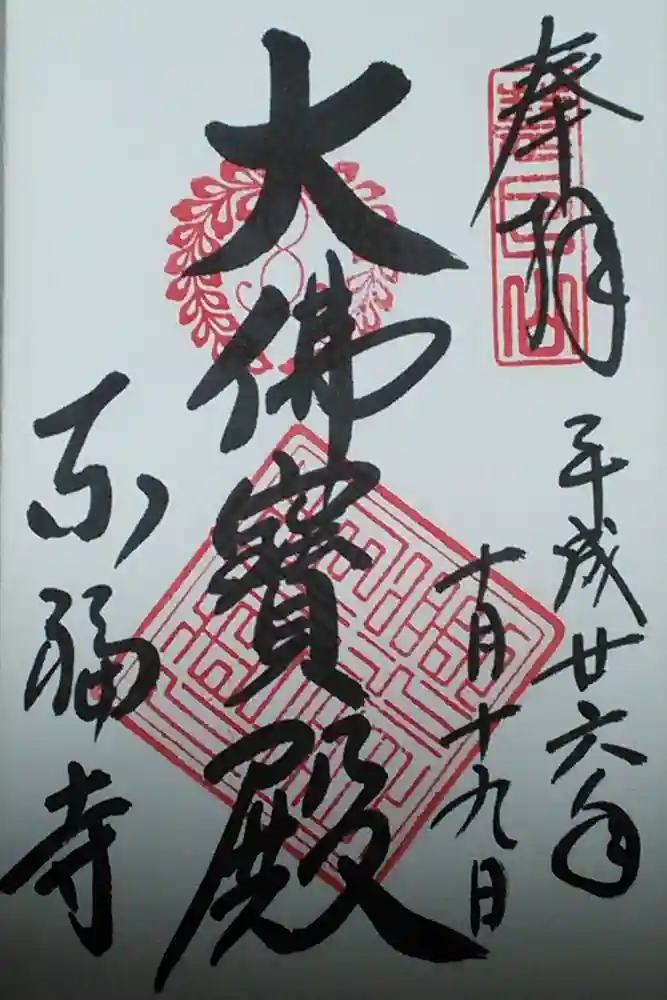 奉拜
平成廿六年
十月十九日
大佛寶殿
東福寺